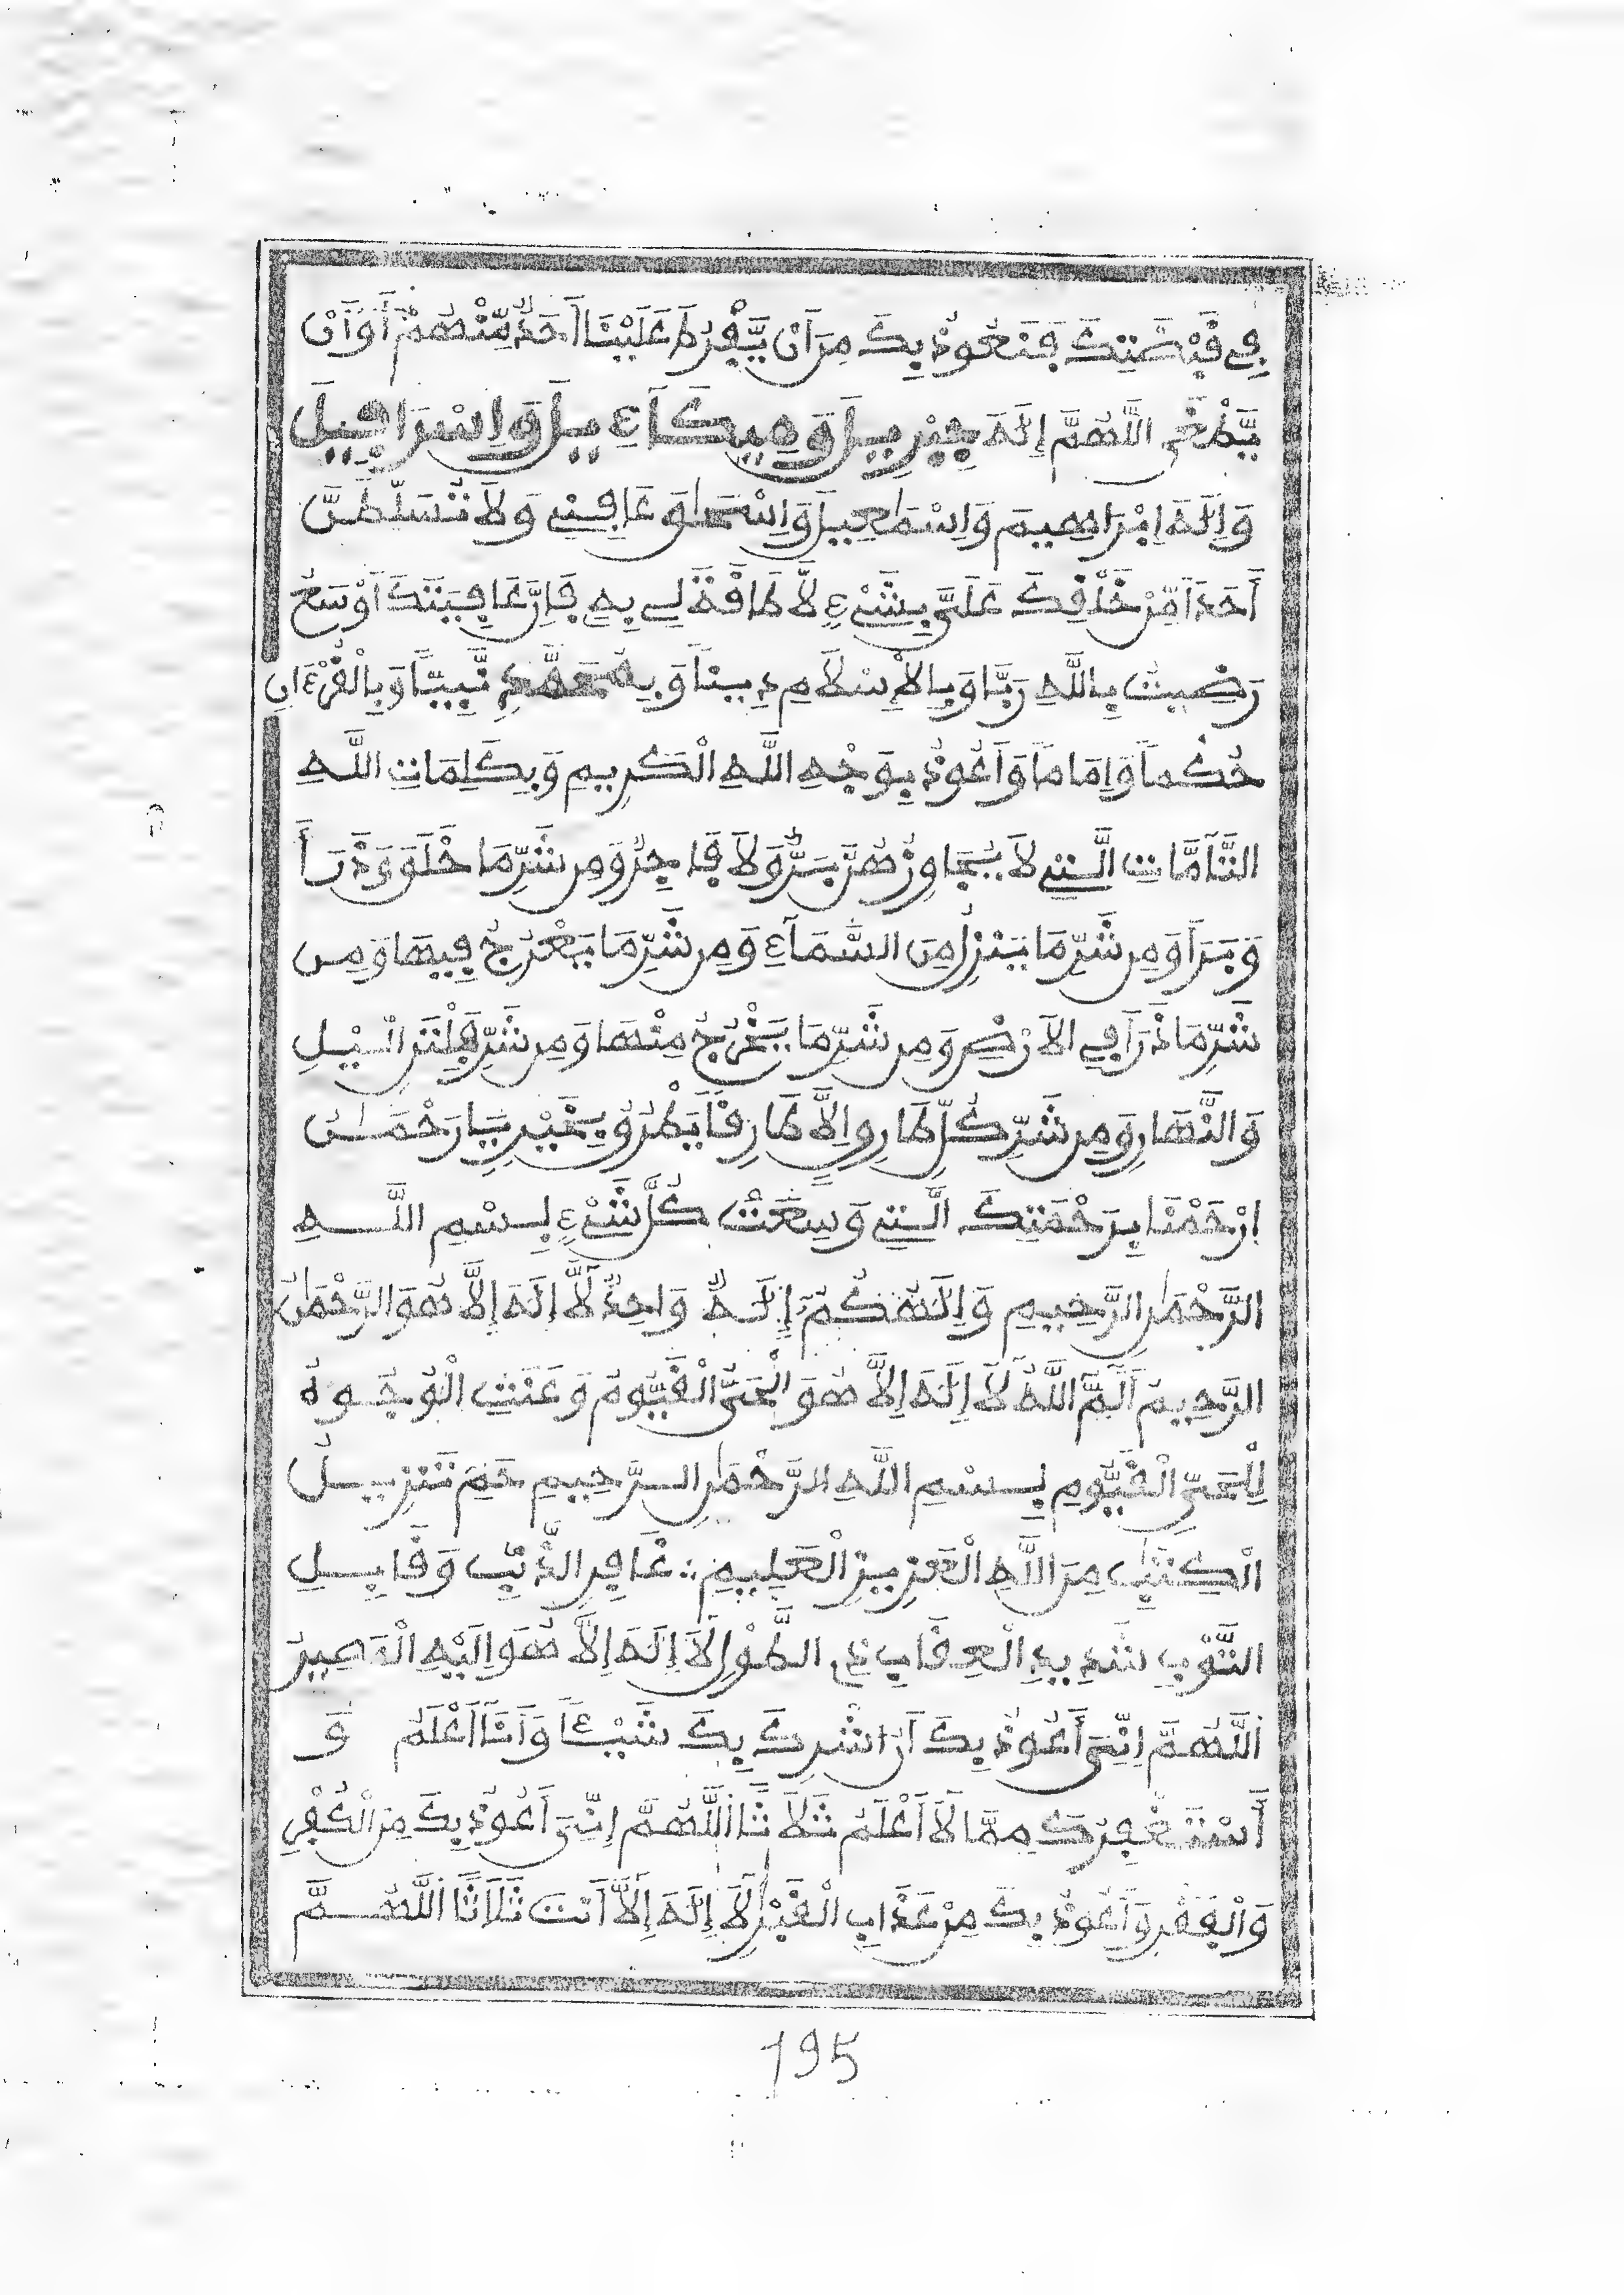 فِي قَبْضَتِكَ فَنَعُوذُ بِكَ مِنَ أَنْ يَّفْرُطَ عَلَيْنَا أَحَدٌ مِّنْهُمْ أَوَ أَنْ
يَّطْغَى اللَّهُمَّ إِلَهَ جِبْرِيلَ وَمِيكَاءِيلَ وَإِسْرَافِيلَ
وَإِلَهَ إِبْرَاهِيمَ وَإِسْمَاعِيلَ وَإِسْحَاقَ عَافِنِي وَلاَ تُسَلِّطَنَّ
أَحَدًا مِّنْ خَلْقِكَ عَلَيَّ بِشَيْءٍ لاَّ طَاقَةَ لِي بِهِ فَإِنَّ عَافِيَتَكَ أَوْسَعُ
رَضِيتُ بِاللَّهِ رَبًّا وَبِالإِسْلاَمِ دِينًا وَبِمُحَمَّدٍ نَّبِيئًا وَبِالْقُرْءَانِ
حُكْمًا وَإِمَامًا وَأَعُوذُ بِوَجْهِ اللَّهِ الْكَرِيمِ وَبِكَلِمَاتِ اللَّهِ
التَّآمَّاتِ الَّتِي لاَ يُجَاوِزُهُنَّ بَرٌّ وَلاَ فَاجِرٌ وَمِن شَرِّ مَا خَلَقَ وَذَرَأَ
وَبَرَأَ وَمِن شَرِّ مَا يَنْزِلُ مِنَ السَّمَآءِ وَمِن شَرِّ مَا يَعْرُجُ فِيهَا وَمِن
شَرِّ مَا ذَرَأَ فِي الأَرْضِ وَمِن شَرِّ مَا يَخْرُجُ مِنْهَا وَمِن شَرِّ فِتَنِ الَّيْلِ
وَالنَّهَارِ وَمِن شَرِّ كُلِّ طَارِقٍ إِلاَّ طَارِقًا يَطْرُقُ بِخَيْرٍ يَا رَحْمَـٰنُ
إِرْحَمْنَا بِرَحْمَتِكَ الَّتِي وَسِعَتْ كُلَّ شَيْءٍ بِسْمِ اللَّهِ
الرَّحْمَـٰنِ الرَّحِيمِ وَإِلَهُكُمْ إِلَهٌ وَاحِدٌ لاَّ إِلَهَ إِلاَّ هُوَ الرَّحْمَـٰنُ
الرَّحِيمُ أَلَمِّ اللَّهُ لاَ إِلَهَ إِلاَّ هُوَ الْحَيُّ الْقَيُّومُ وَعَنَتِ الْوُجُوهُ
لِلْحَيِّ الْقَيُّومِ بِسْمِ اللَّهِ الرَّحْمَـٰنِ الرَّحِيمِ حَمِ تَنْزِيلُ
الْكِتَـٰبِ مِنَ اللَّهِ الْعَزِيزِ الْعَلِيمِ ∴ غَافِرِ الذَّنْبِ وَقَابِلِ
التَّوْبِ شَدِيدِ الْعِقَابِ ذِي الطَّوْلِ لاَ إِلَهَ إِلاَّ هُوَ إِلَيْهِ الْمَصِيرُ
اَللَّهُمَّ إِنِّي أَعُوذُ بِكَ أَنْ أُشْرِكَ بِكَ شَيْئًا وَأَنَا أَعْلَمُ وَ
أَسْتَغْفِرُكَ مِمَّا لاَ أَعْلَمُ ثَلاَثًا اَللَّهُمَّ إِنِّي أَعُوذُ بِكَ مِنَ الْكُفْرِ
وَالْفَقْرِ وَأَعُوذُ بِكَ مِنْ عَذَابِ الْقَبْرِ لاَ إِلَهَ إِلاَّ أَنْتَ ثَلاَثًا اَللَّهُمَّ
195